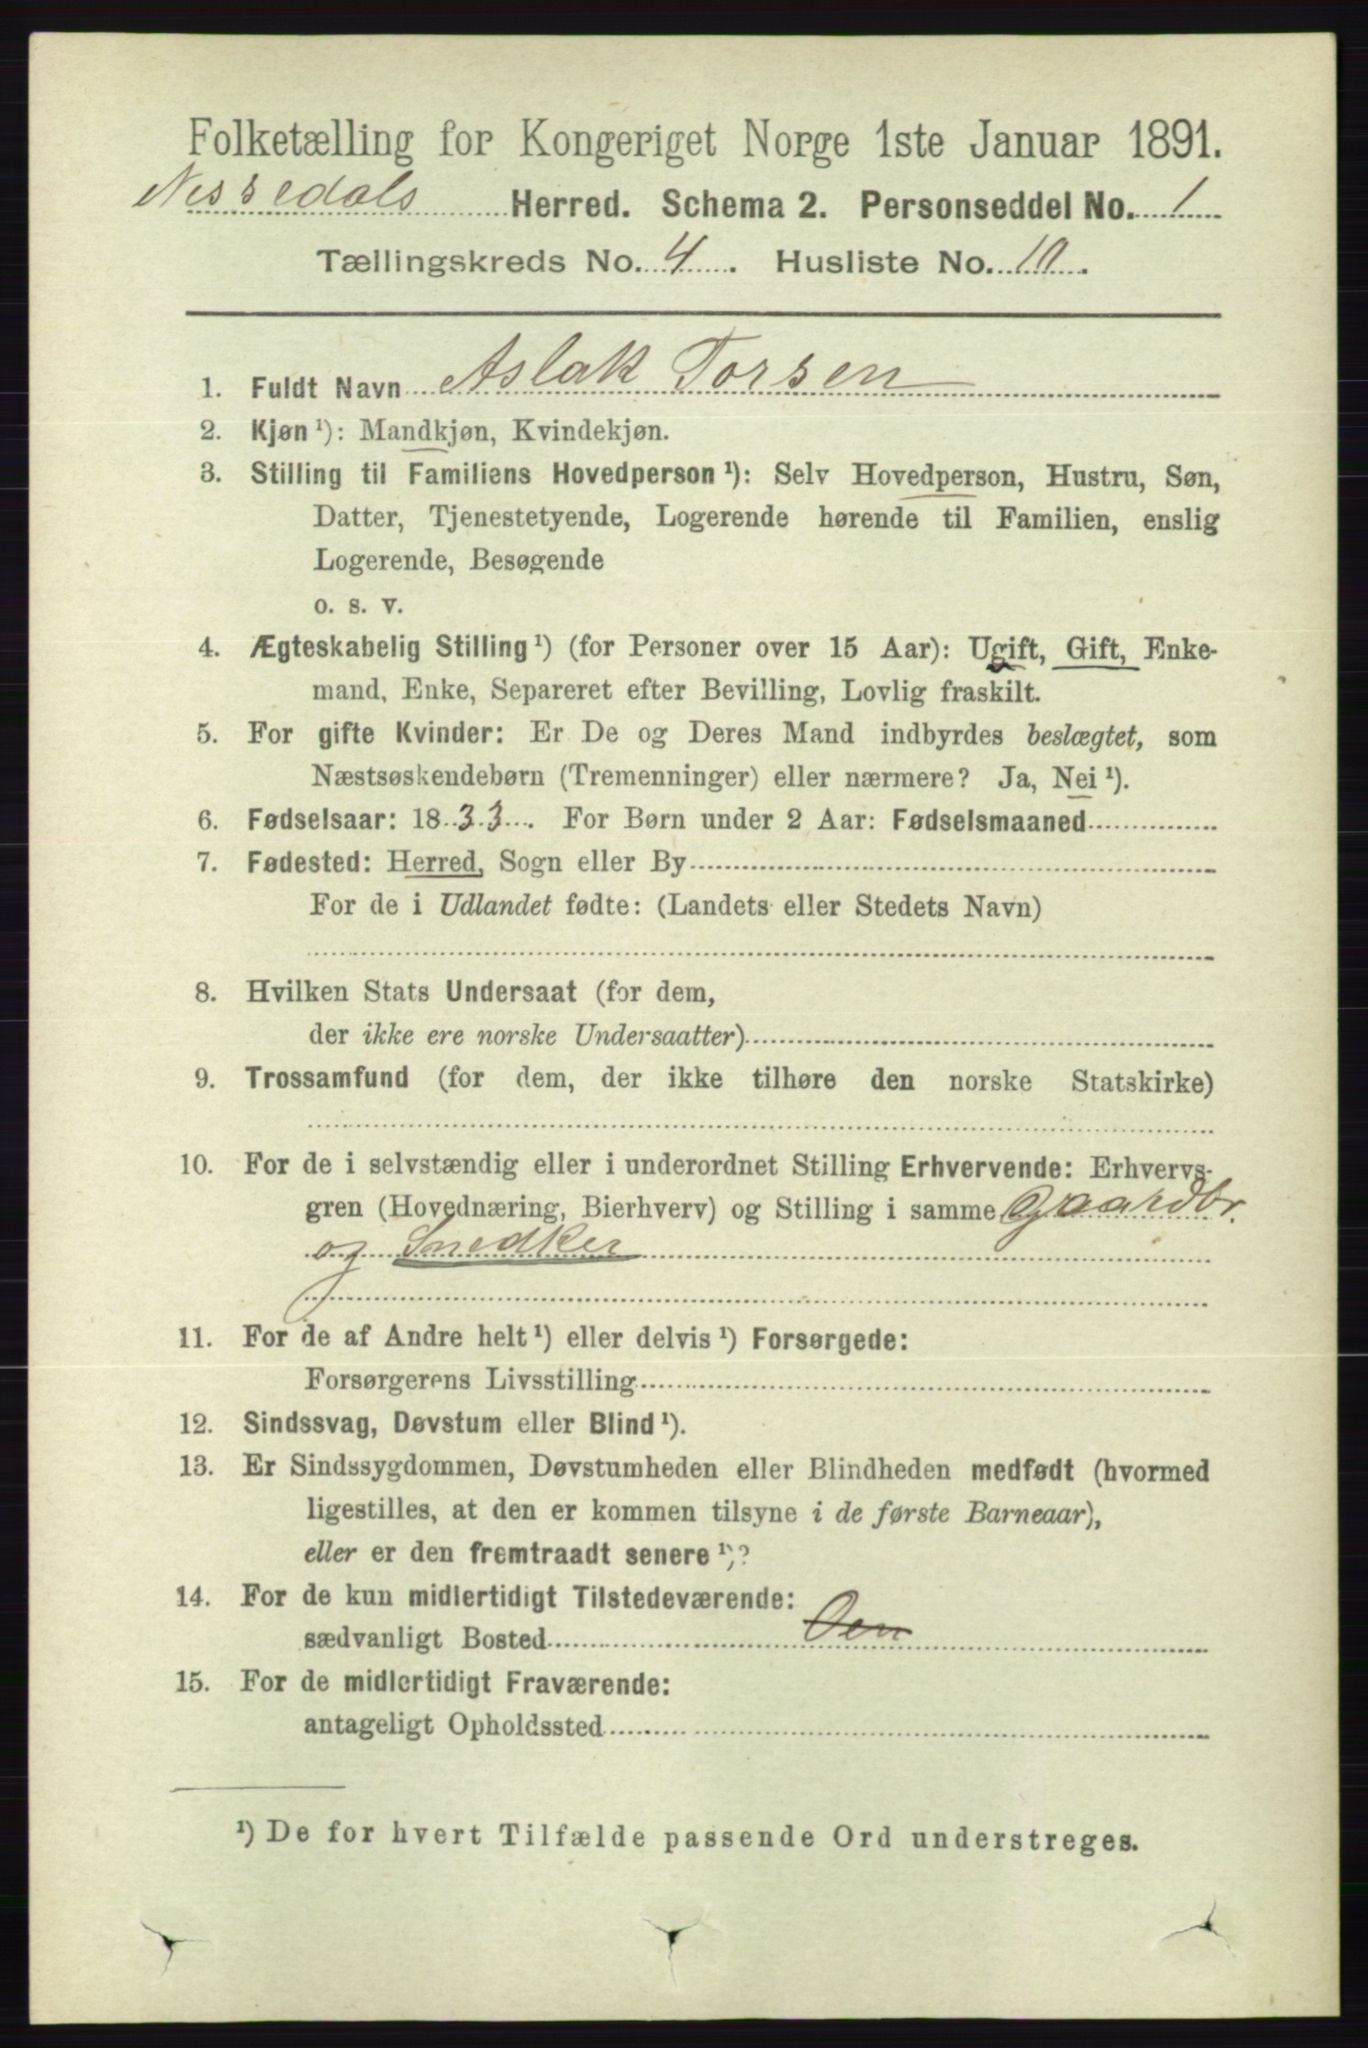 Folketælling for Kongeriget Norge 1ste Januar 1891.
Nissedals Herred. Schema 2. Personseddel No. 1
Tællingskreds No. 4. Husliste No. 10.
1. Fuldt Navn Aslak Torsen
2. Kjøn ¹): Mandkjøn, Kvindekjøn.
3. Stilling til Familiens Hovedperson ¹): Selv Hovedperson, Hustru, Søn,
Datter, Tjenestetyende, Logerende hørende til Familien, enslig
Logerende, Besøgende
o. s. v.
4. Ægteskabelig Stilling ¹) (for Personer over 15 Aar): Ugift, Gift, Enke-
mand, Enke, Separeret efter Bevilling, Lovlig fraskilt.
5. For gifte Kvinder: Er De og Deres Mand indbyrdes beslægtet, som
Næstsøskendebørn (Tremenninger) eller nærmere? Ja, Nei ¹).
6. Fødselsaar: 1833. For Børn under 2 Aar: Fødselsmaaned
7. Fødested: Herred, Sogn eller By
For de i Udlandet fødte: (Landets eller Stedets Navn)
8. Hvilken Stats Undersaat (for dem,
der ikke ere norske Undersaatter)
9. Trossamfund (for dem, der ikke tilhøre den norske Statskirke)
10. For de i selvstændig eller i underordnet Stilling Erhvervende: Erhvervs-
gren (Hovednæring, Bierhverv) og Stilling i samme Gaardbr.
og Snedker
11. For de af Andre helt ¹) eller delvis ¹) Forsørgede:
Forsørgerens Livsstilling
12. Sindssvag, Døvstum eller Blind ¹).
13. Er Sindssygdommen, Døvstumheden eller Blindheden medfødt (hvormed
ligestilles, at den er kommen tilsyne i de første Barneaar),
eller er den fremtraadt senere ¹)?
14. For de kun midlertidigt Tilstedeværende:
sædvanligt Bosted Oen
15. For de midlertidigt Fraværende:
antageligt Opholdssted
¹) De for hvert Tilfælde passende Ord understreges.